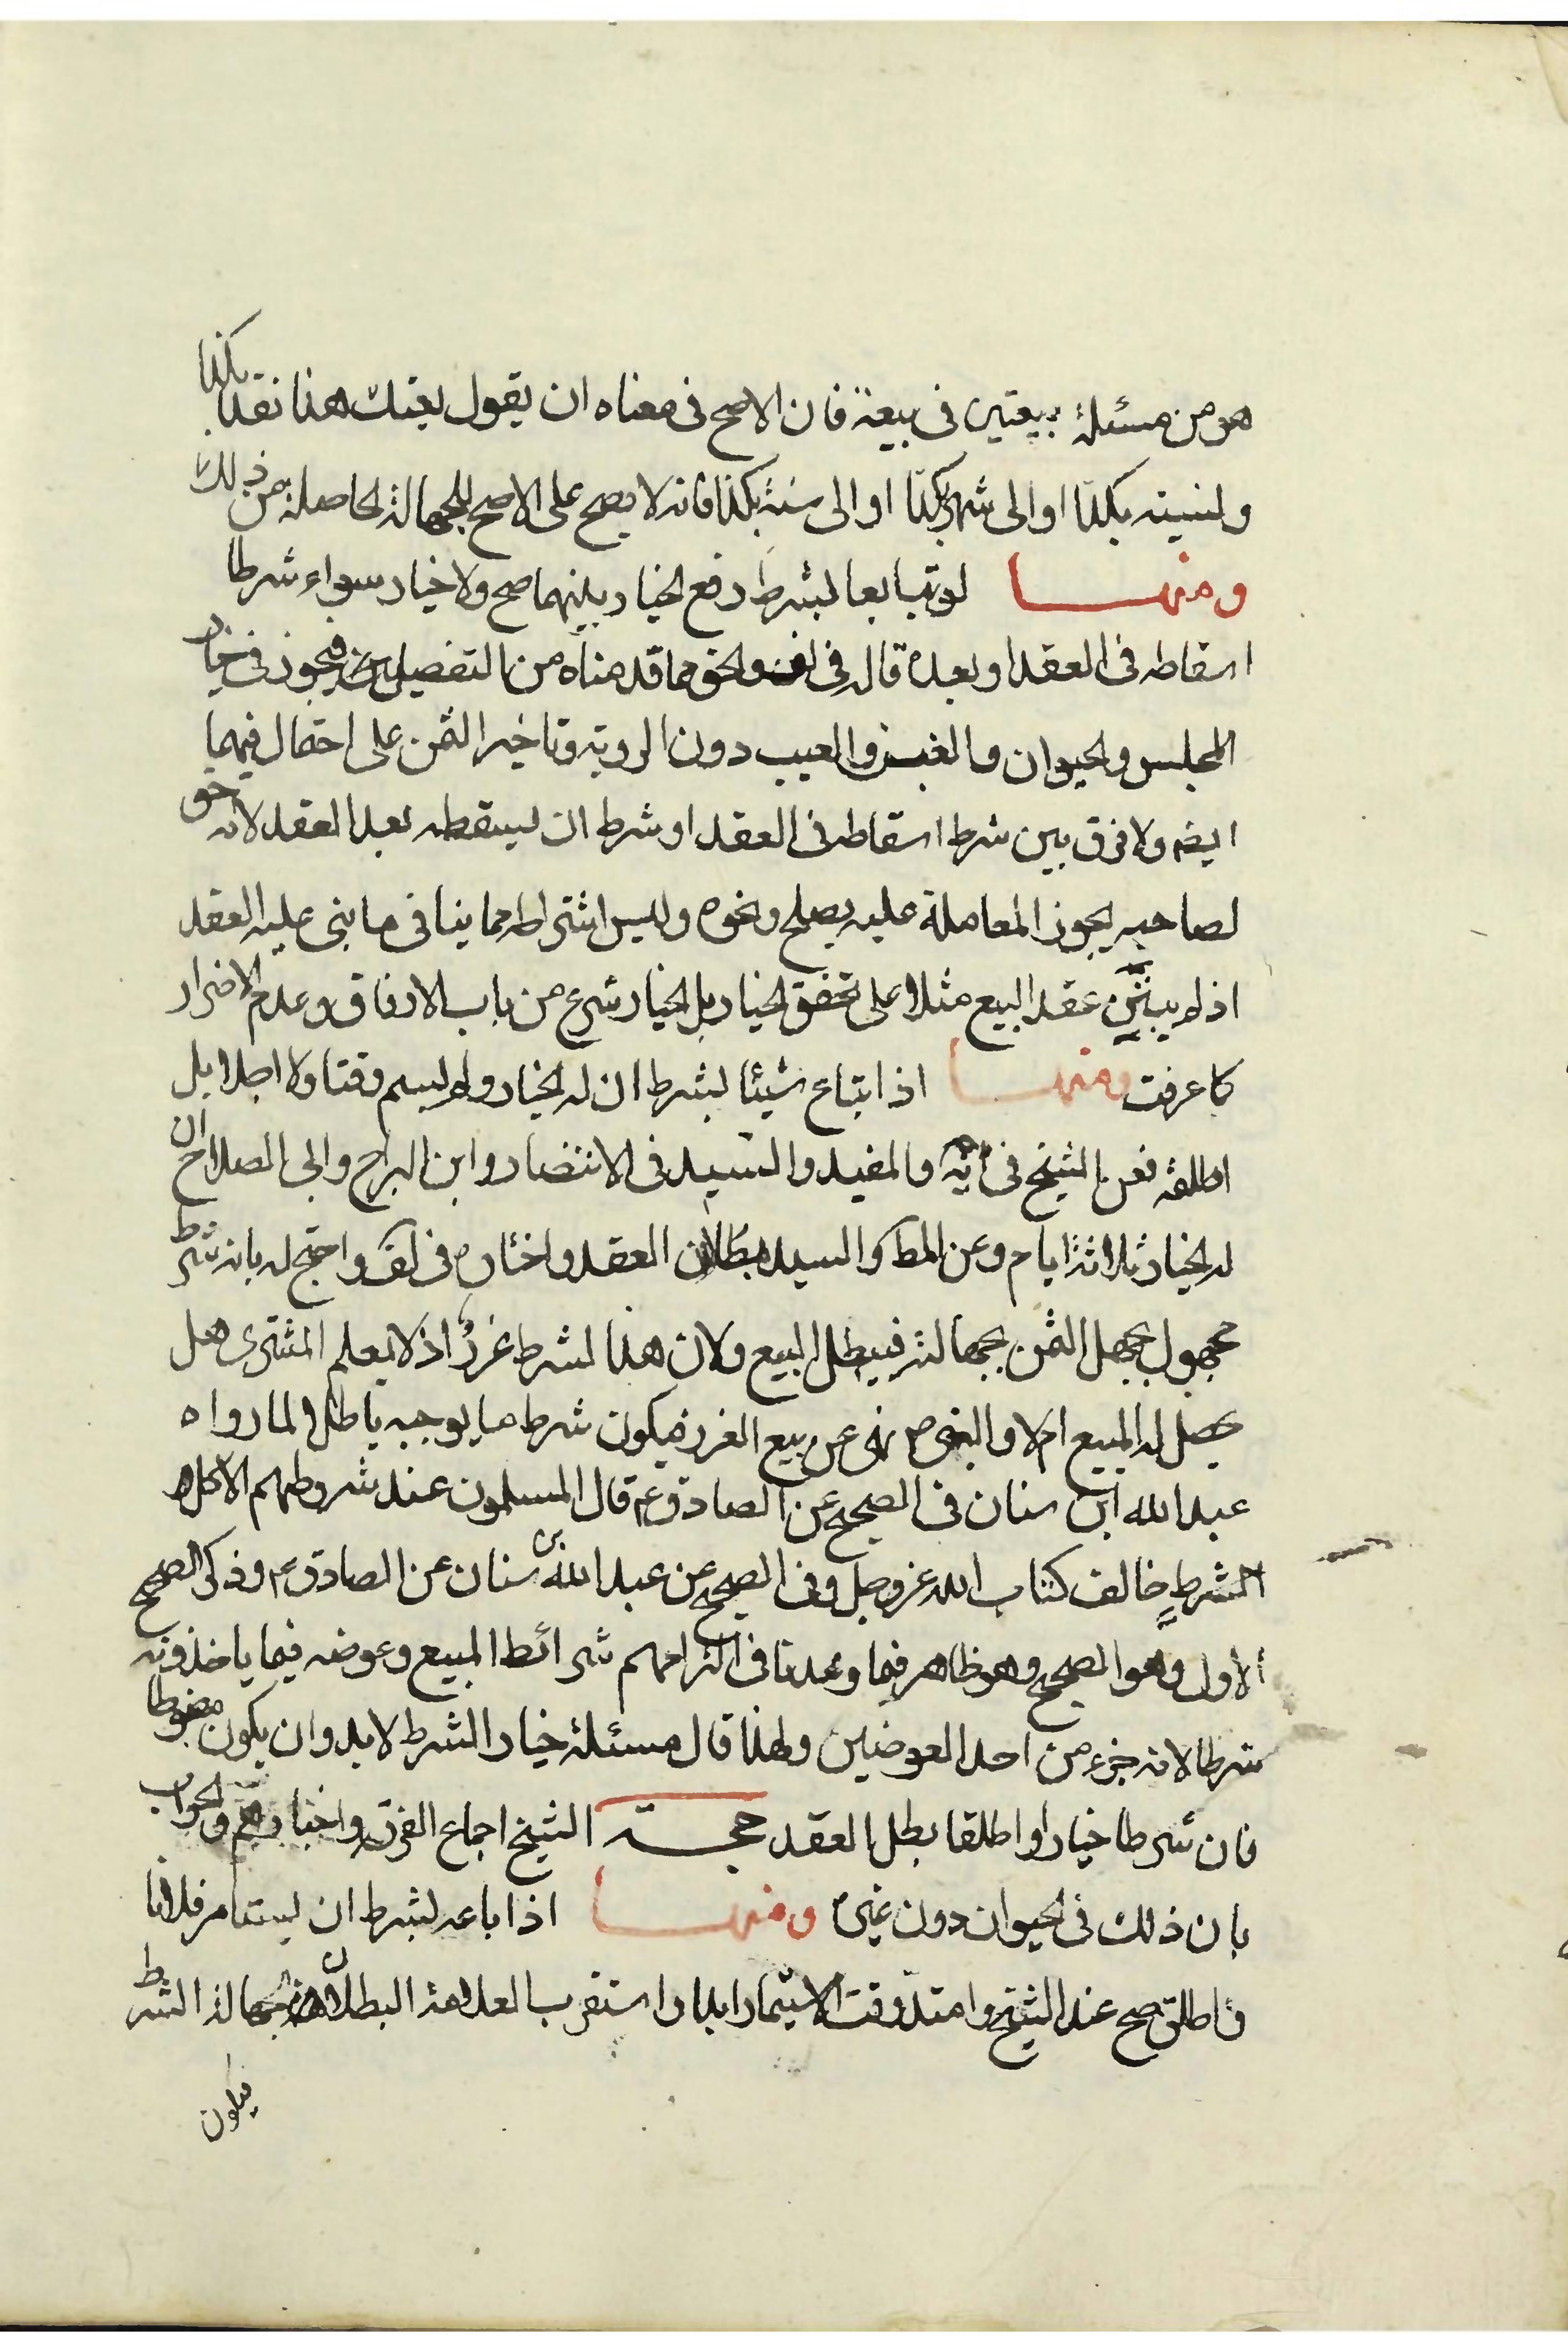 هو من مسئلة بيعتين فى بيعة فان الاصح فى معناه ان يقول بعتك هذا نقدا بكذا
ولنسيته بكذا او الى شهر بكذا او الى سنة بكذا فانه لا يصح على الاصح للجهالة الحاصلة من ذلك
ومنها لو تبايعا بشرط رفع الخيار بينهما صح ولا خيار سواء شرطا
اسقاطه فى العقد او بعده قال فى والحق ما قدمناه من التفصيل فيجوز فى خيار
المجلس والحيوان والغبن والعيب دون الروية وتاخير الثمن على احتمال فيهما
ايضا ولا فرق بين شرط اسقاطه فى العقد او شرط ان يسقطه بعد العقد لانه حق
لصاحبه يجوز المعاملة عليه بصلح ونحوه وليس اشتراطه مما ينافى ما بنى عليه العقد
اذ لم يبتن عقد البيع مثلا على تحقق الخيار بل الخيار شرع من باب الارفاق وعدم الاضرار
كما عرفت ومنها اذا ابتاع شيئا بشرط ان له الخيار ولم يسم وقتا ولا اجلا بل
اطلقه فعن الشيخ فى يه والمفيد والسيد فى الانتصار وابن البراج وابى الصلاح ان
له الخيار ثلاثة ايام وعن المط والسيد بطلان العقد واختاره فى لف واحتج له بانه شرط
مجهول بجهل الثمن بجهالته فيبطل البيع ولان هذا الشرط غرر اذ لا يعلم المشترى هل
يحصل له المبيع ام لا والنبى ص نهى عن بيع الغرر فيكون شرط ما يوجبه باطلا لما رواه
عبد الله ابن سنان فى الصحيح عن الصادق ع قال المسلمون عند شروطهم الا كل
الشرط خالف كتاب الله عز وجل وفى الصحيح عن عبد الله بن سنان عن الصادق ع وذكر الصحيح
الاول وهو الصحيح وهو ظاهر فيما وعدنا فى التزامهم شرائط المبيع وعوضه فيما ياخذونه
شرطا لانه جزء من احد العوضين ولهذا قال مسئلة خيار الشرط لا بد وان يكون مضبوطا
فان شرطا خيارا واطلقا بطل العقد حجة الشيخ اجماع الفرقة واخبارهم والجواب
بان ذلك فى الحيوان دون غيره ومنها اذا باعه بشرط ان يستامر فلانا
واطلق صح عند الشيخ وامتد وقت الاستيمار ابدا واستقرب العلامة البطلان لجهالة الشرط
فيكون